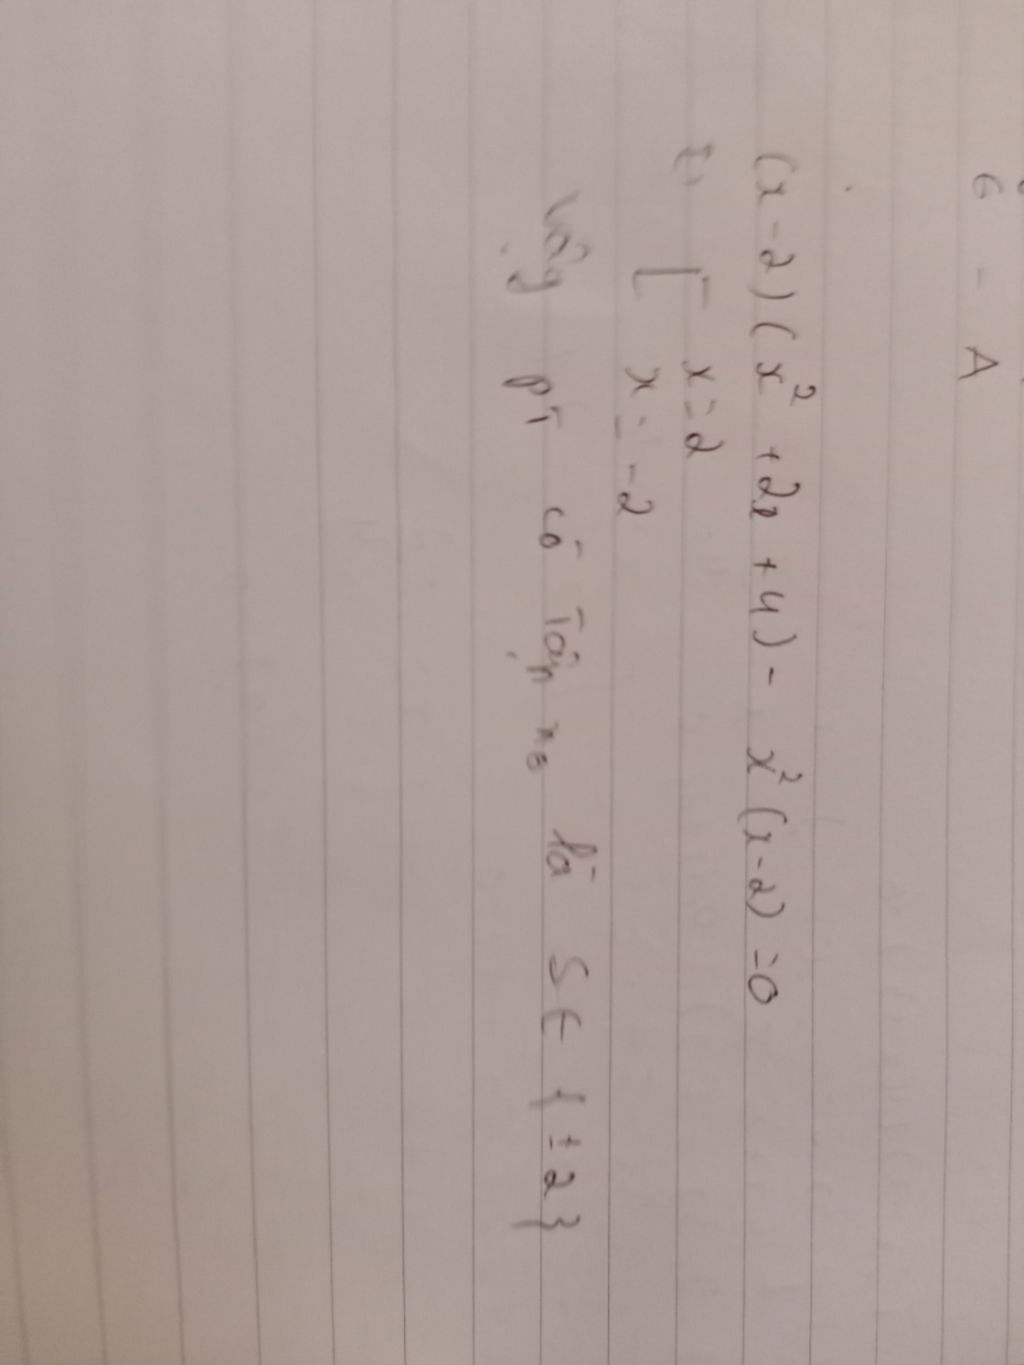 6 - A
(x-2)(x² + 2x + 4) - x²(x-2) = 0
[ x = 2
x = -2
Vậy PT có tập no là S ∈ {±2}